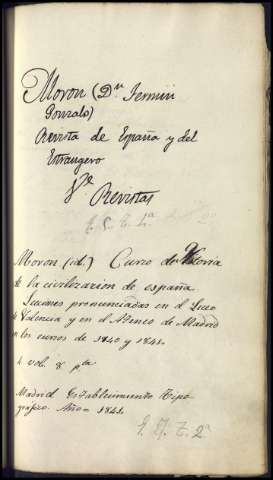 Moron (Dn Fermin
Gonzalo)
Revista de España y del
Estrangero
Ve Revistas
E. C. T. 4ª
Moron (id) Curso de Historia
de la civilizacion de españa.
Lecciones pronunciadas en el Liceo
de Valencia y en el Ateneo de Madrid
en los cursos de 1840 y 1841.
4 vol. 8º pta
Madrid Establecimiento Tipo
grafico. Año - 1841.
E. 2ª